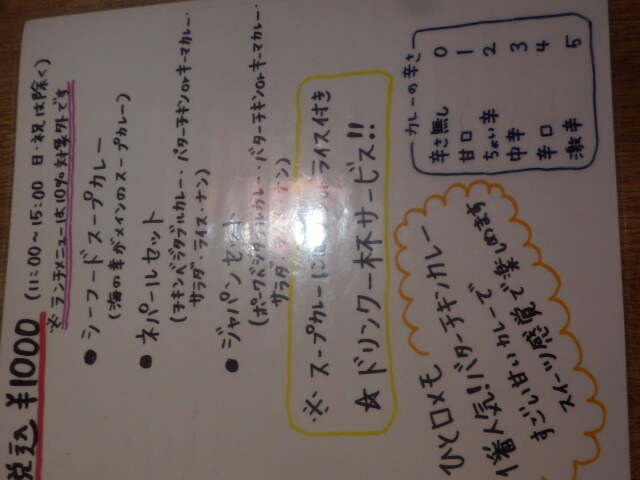 税込 ¥1000 (11:00〜15:00 日・祝は除く)
※ランチメニューは10%対象外です
● シーフードスープカレー
(海の幸がメインのスープカレー)
● ネパールセット
(チキン・ベジタブルカレー・バターチキンorキーマカレー・
サラダ・ライス・ナン)
● ジャパンセット
(ポーク・ベジタブルカレー・バターチキンorキーマカレー・
サラダ・
※ スープカレーに
ライス付き
☆ドリンク一杯サービス!!
カレーの辛さ
辛さ無し 0
甘口 1
ちょい辛 2
中辛 3
辛口 4
激辛 5
ひと口メモ
1番人気!バターチキンカレー
すごい甘いカレーで
スイーツ感覚で楽しめます